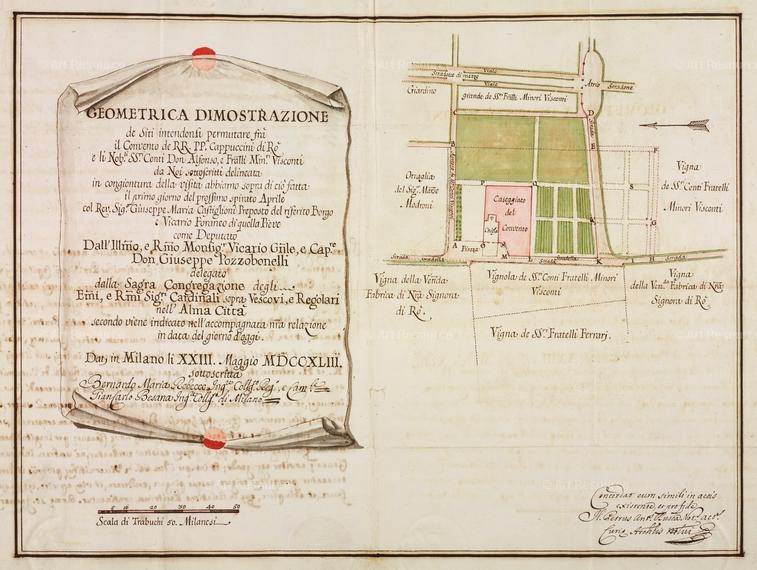 GEOMETRICA DIMOSTRAZIONE
de Siti intendonsi permutare frà
il Convento de RR. PP. Cappuccini di Rò
e li Nob. SS. Conti Don Alfonso, e Frãtlli Min. Visconti
da Noi sottoscritti delineata
in congientura della visita abbiamo sopra di ciò fatta
il primo giorno del prossimo spirato Aprile
col Rev. Sig. Giuseppe Maria Castiglioni Preposto del riferito Borgo
e Vicario Foraneo di quella Pieve
come Deputato
Dall'Illmo, e Rmo Monsig. Vicario Gnle, e Cap.
Don Giuseppe Pozzobonelli
delegato
dalla Sagra Congregazione degli
Emi, e Rmi Sig. Cardinali sopra Vescovi, e Regolari
nell'Alma Città
secondo viene indicato nell'accompagnata nra relazione
in data del giorno d'oggi.
Dat. in Milano li XXIII. Maggio MDCCXLIII.
sottoscritta
Bernardo Maria Robecco Ing. Coll. Reg. e Cam.
Giancarlo Besana Ing. Coll. di Milano
10 20 30 40 50
Scala di Trabuchi 50. Milanesi
Viale
Stradone di mezzo
Viale
Atrio
Stradone
Giardino
grande de SS. Fratlli Minori Visconti
C
D
Strada
B
E
F
Ortaglia
del Sig. 
Modroni
Vigna
de SS. Conti Fratelli
Minori Visconti
P
Q
S
Caseggiato
del
Convento
Chiesa
G
A
Piazza
O
N
M
L
K
I
H
Strada
Stradella
Stradella
Strada
Vigna della Venda
Fabrica di Nrã Signora
di Rò.
Vignola de SS. Conti Fratelli Minori
Visconti
Vigna
della Ven. Fabrica di Nrã
Signora di Rò
Vigna de SS. Fratelli Ferrari.
Concordat cum simili in actis
existente, et pro fide
Petrus Ant.
Curiæ
© Art Resource